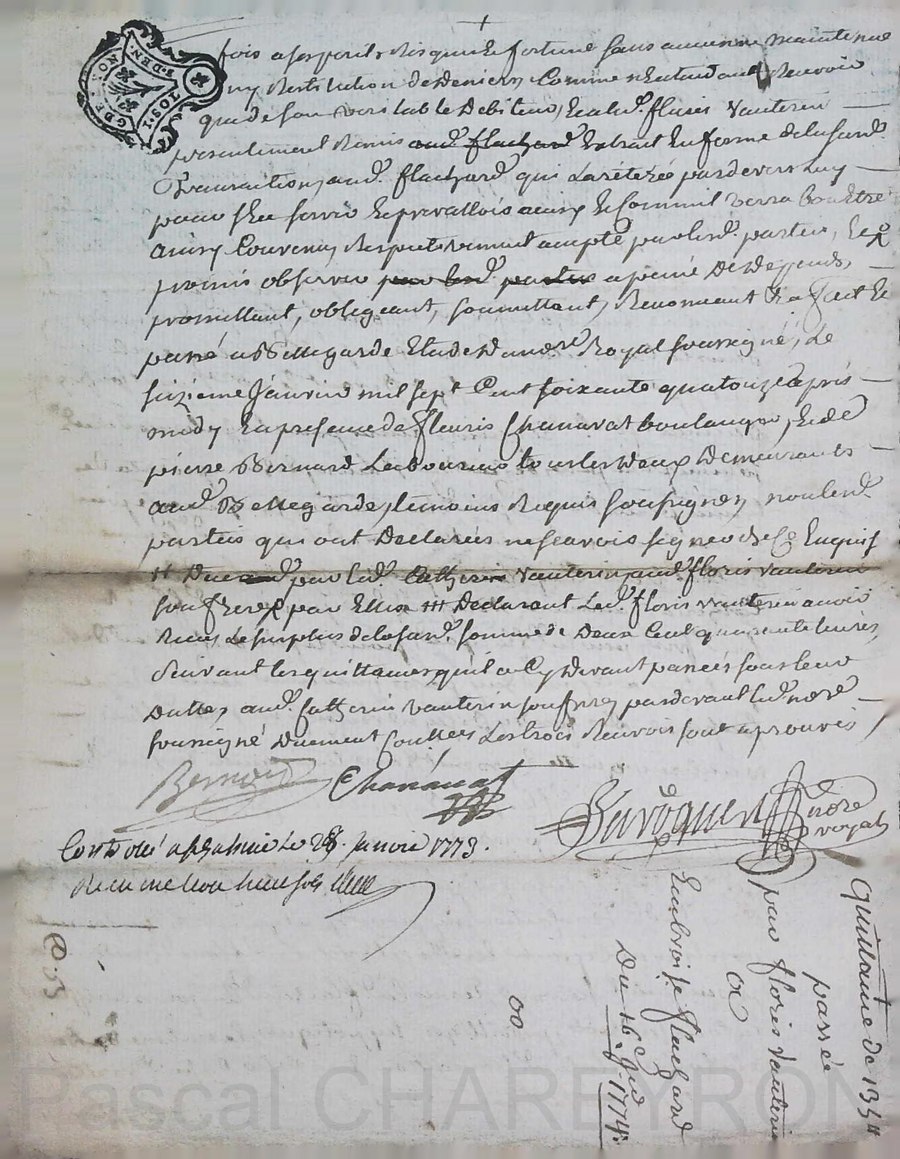 fois a ses perils Risques & fortune sans aucienne maintenue
ny Restitution de deniers, Comme n'Entendant Recevoir
que de son veritable Debiteur, & a led.t fleuris vauterin
presentement Remis aud.t flachard Extrait En forme de la susd.e
Transaction, aud.t flachard qui La retirée pardevers Luy
pour s'En servir & prevalloir ainsy & Comm'il verra bon Etre
ainsy Convenu, Respectivement accepté par lesd. parties, &
promis observer par lesd. parties a peine De Depends,
promettant, obligeant, soumettant, Renonceant & a fait &
passé a Bellegarde Etude du no.re Royal soussigné, Le
seizieme Janvier mil sept Cent soixante quatorze apres
midy En presence de fleuris Chanavat boulanger, & de
pierre Bernard Laboureur tous les deux Demeurants
aud.t Bellegarde, temoins Requis soussignez non lesd.
parties qui ont Declarées ne scavoir signer de Ce Enquis
# par led. Catherin vauterin aud. floris vauterin
son frere par Elle # Declarant Led. floris vauterin avoir
Reçu Le surplus de la susd.e somme de Deux Cent quarente livres,
suivant les quittances qu'il a Cy devant passées sous leur
Dattes, aud. Catherin vauterin son frere pardevant led. no.re
soussigné Duement Conttllees Les trois Renvois sont aprouvés
Bernard Chanavat
no.re royal
Controllé a le 28. Janvier 1773.
Reçu
Quittance de 135#
passée
par floris vauterin
a
Embroise flachard
Du 16.e 1774.